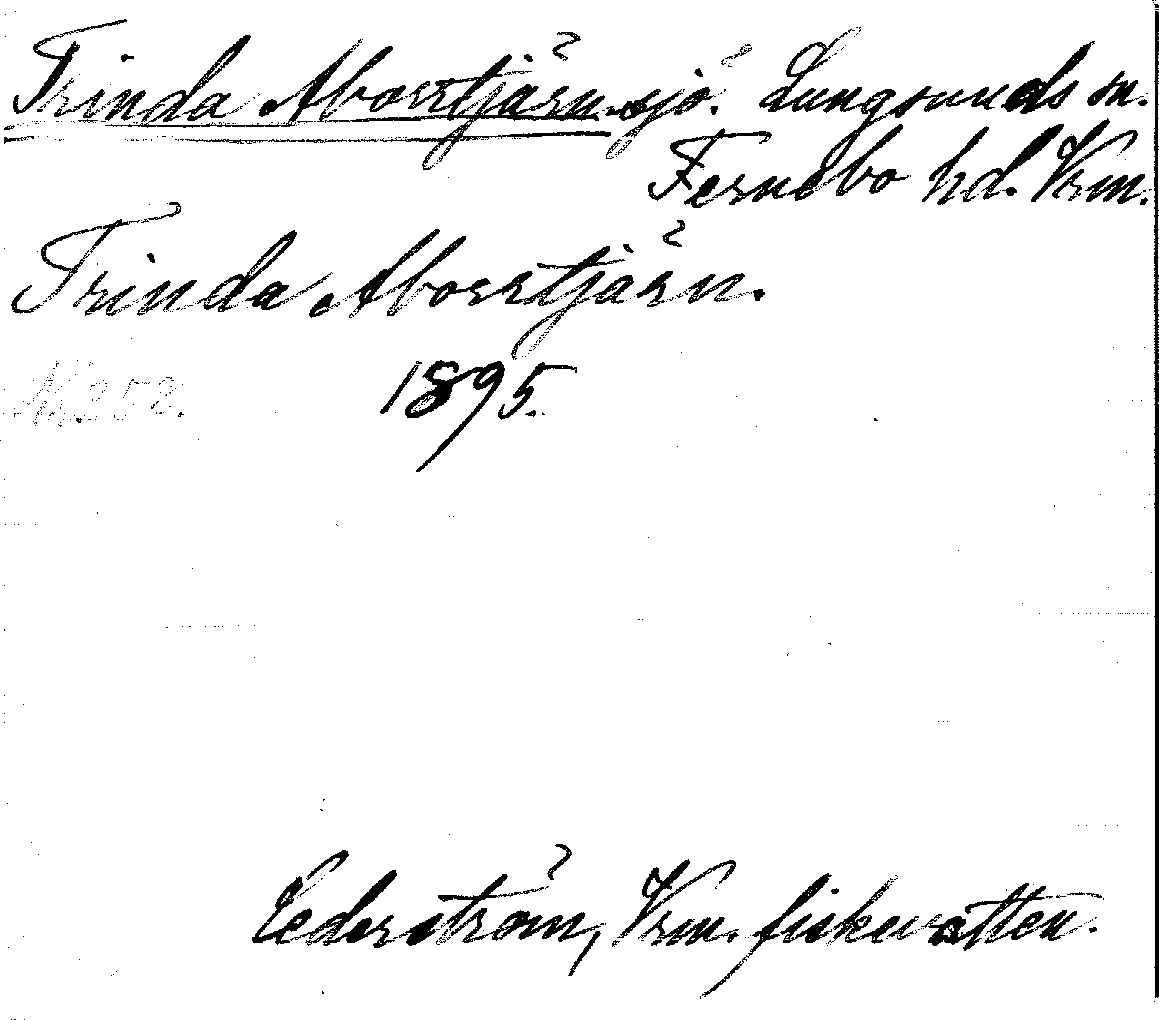 Trinda Aborrtjärn. sjö. Lungsunds sn.
Fernebo hd. Vrm.
Trinda Aborrtjärn.
Nr. 252. 1895.
Cederström, Vrm. fiskevatten.